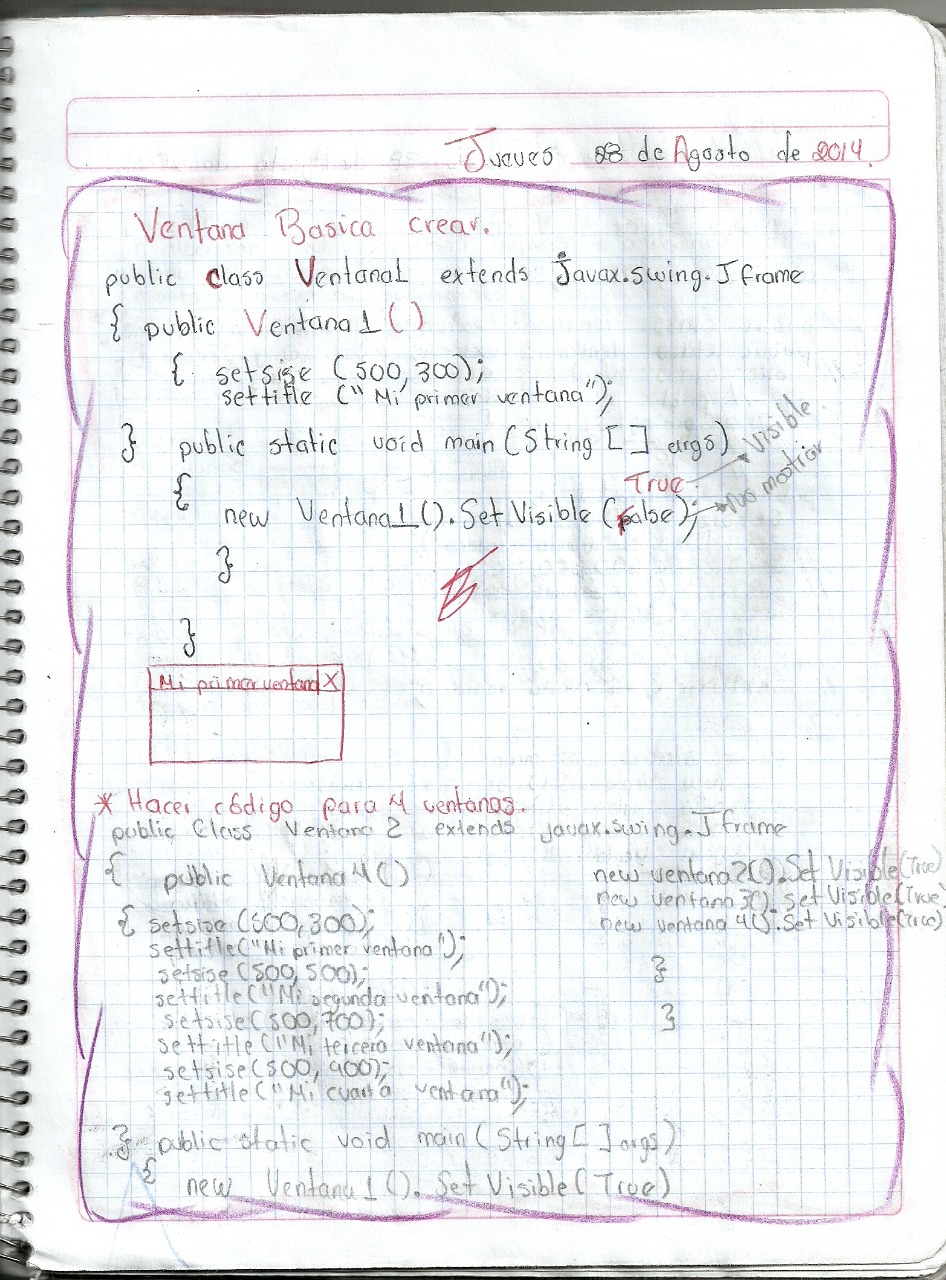 Jueves 28 de Agosto de 2014.
Ventana Basica crear.
public class Ventana1 extends javax.swing.Jframe
{ public Ventana1()
{ setsise (500,300);
settitle ("Mi primer ventana");
} public static void main(String[] args)
{
True Visible
new Ventana1().SetVisible(false); No mostrar
}
}
Mi primer ventana X
* Hacer código para 4 ventanas.
public Class Ventana 2 extends javax.swing.Jframe
{ public Ventana4()
{ setsise (500,300);
settitle("Mi primer ventana");
setsise (500,500);
settitle("Mi segunda ventana");
setsise(500,700);
settitle("Mi tercera ventana");
setsise(500,900);
settitle ("Mi cuarta ventana");
} public static void main(String[] args)
{
new Ventana1().SetVisible(True)
new ventana2().SetVisible(True)
new ventana3().setVisible(True,
new ventana 4().SetVisible(True)
}
}